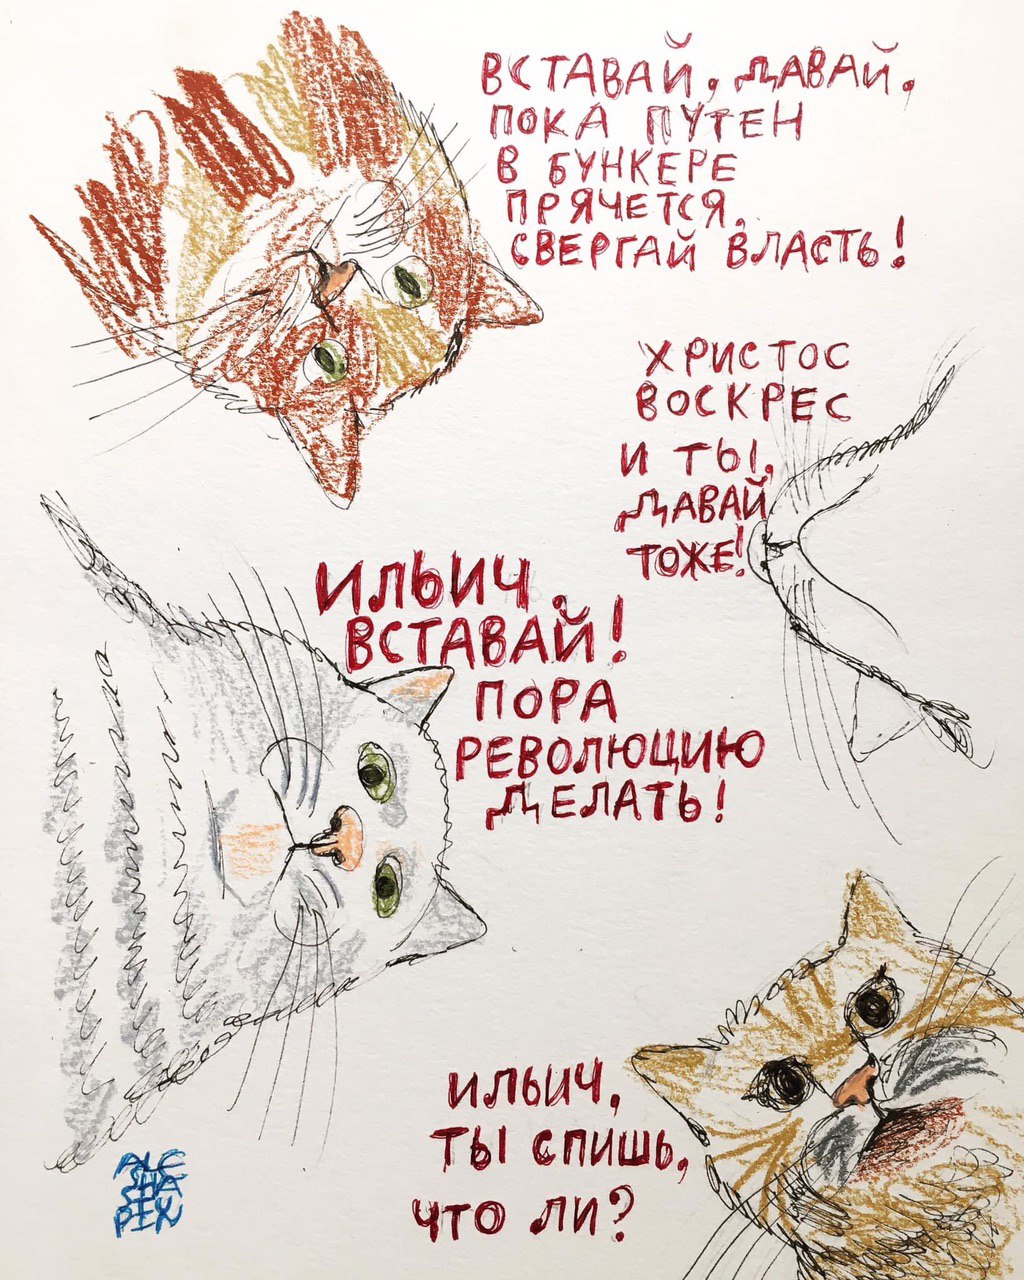 ВСТАВАЙ, ДАВАЙ,
ПОКА ПУТЕН
В БУНКЕРЕ
ПРЯЧЕТСЯ,
СВЕРГАЙ ВЛАСТЬ!
ХРИСТОС
ВОСКРЕС
И ТЫ,
ДАВАЙ
ТОЖЕ!
ИЛЬИЧ,
ВСТАВАЙ!
ПОРА
РЕВОЛЮЦИЮ
ДЕЛАТЬ!
ИЛЬИЧ,
ТЫ СПИШЬ,
ЧТО ЛИ?
ALE
SHA
STU
PIN